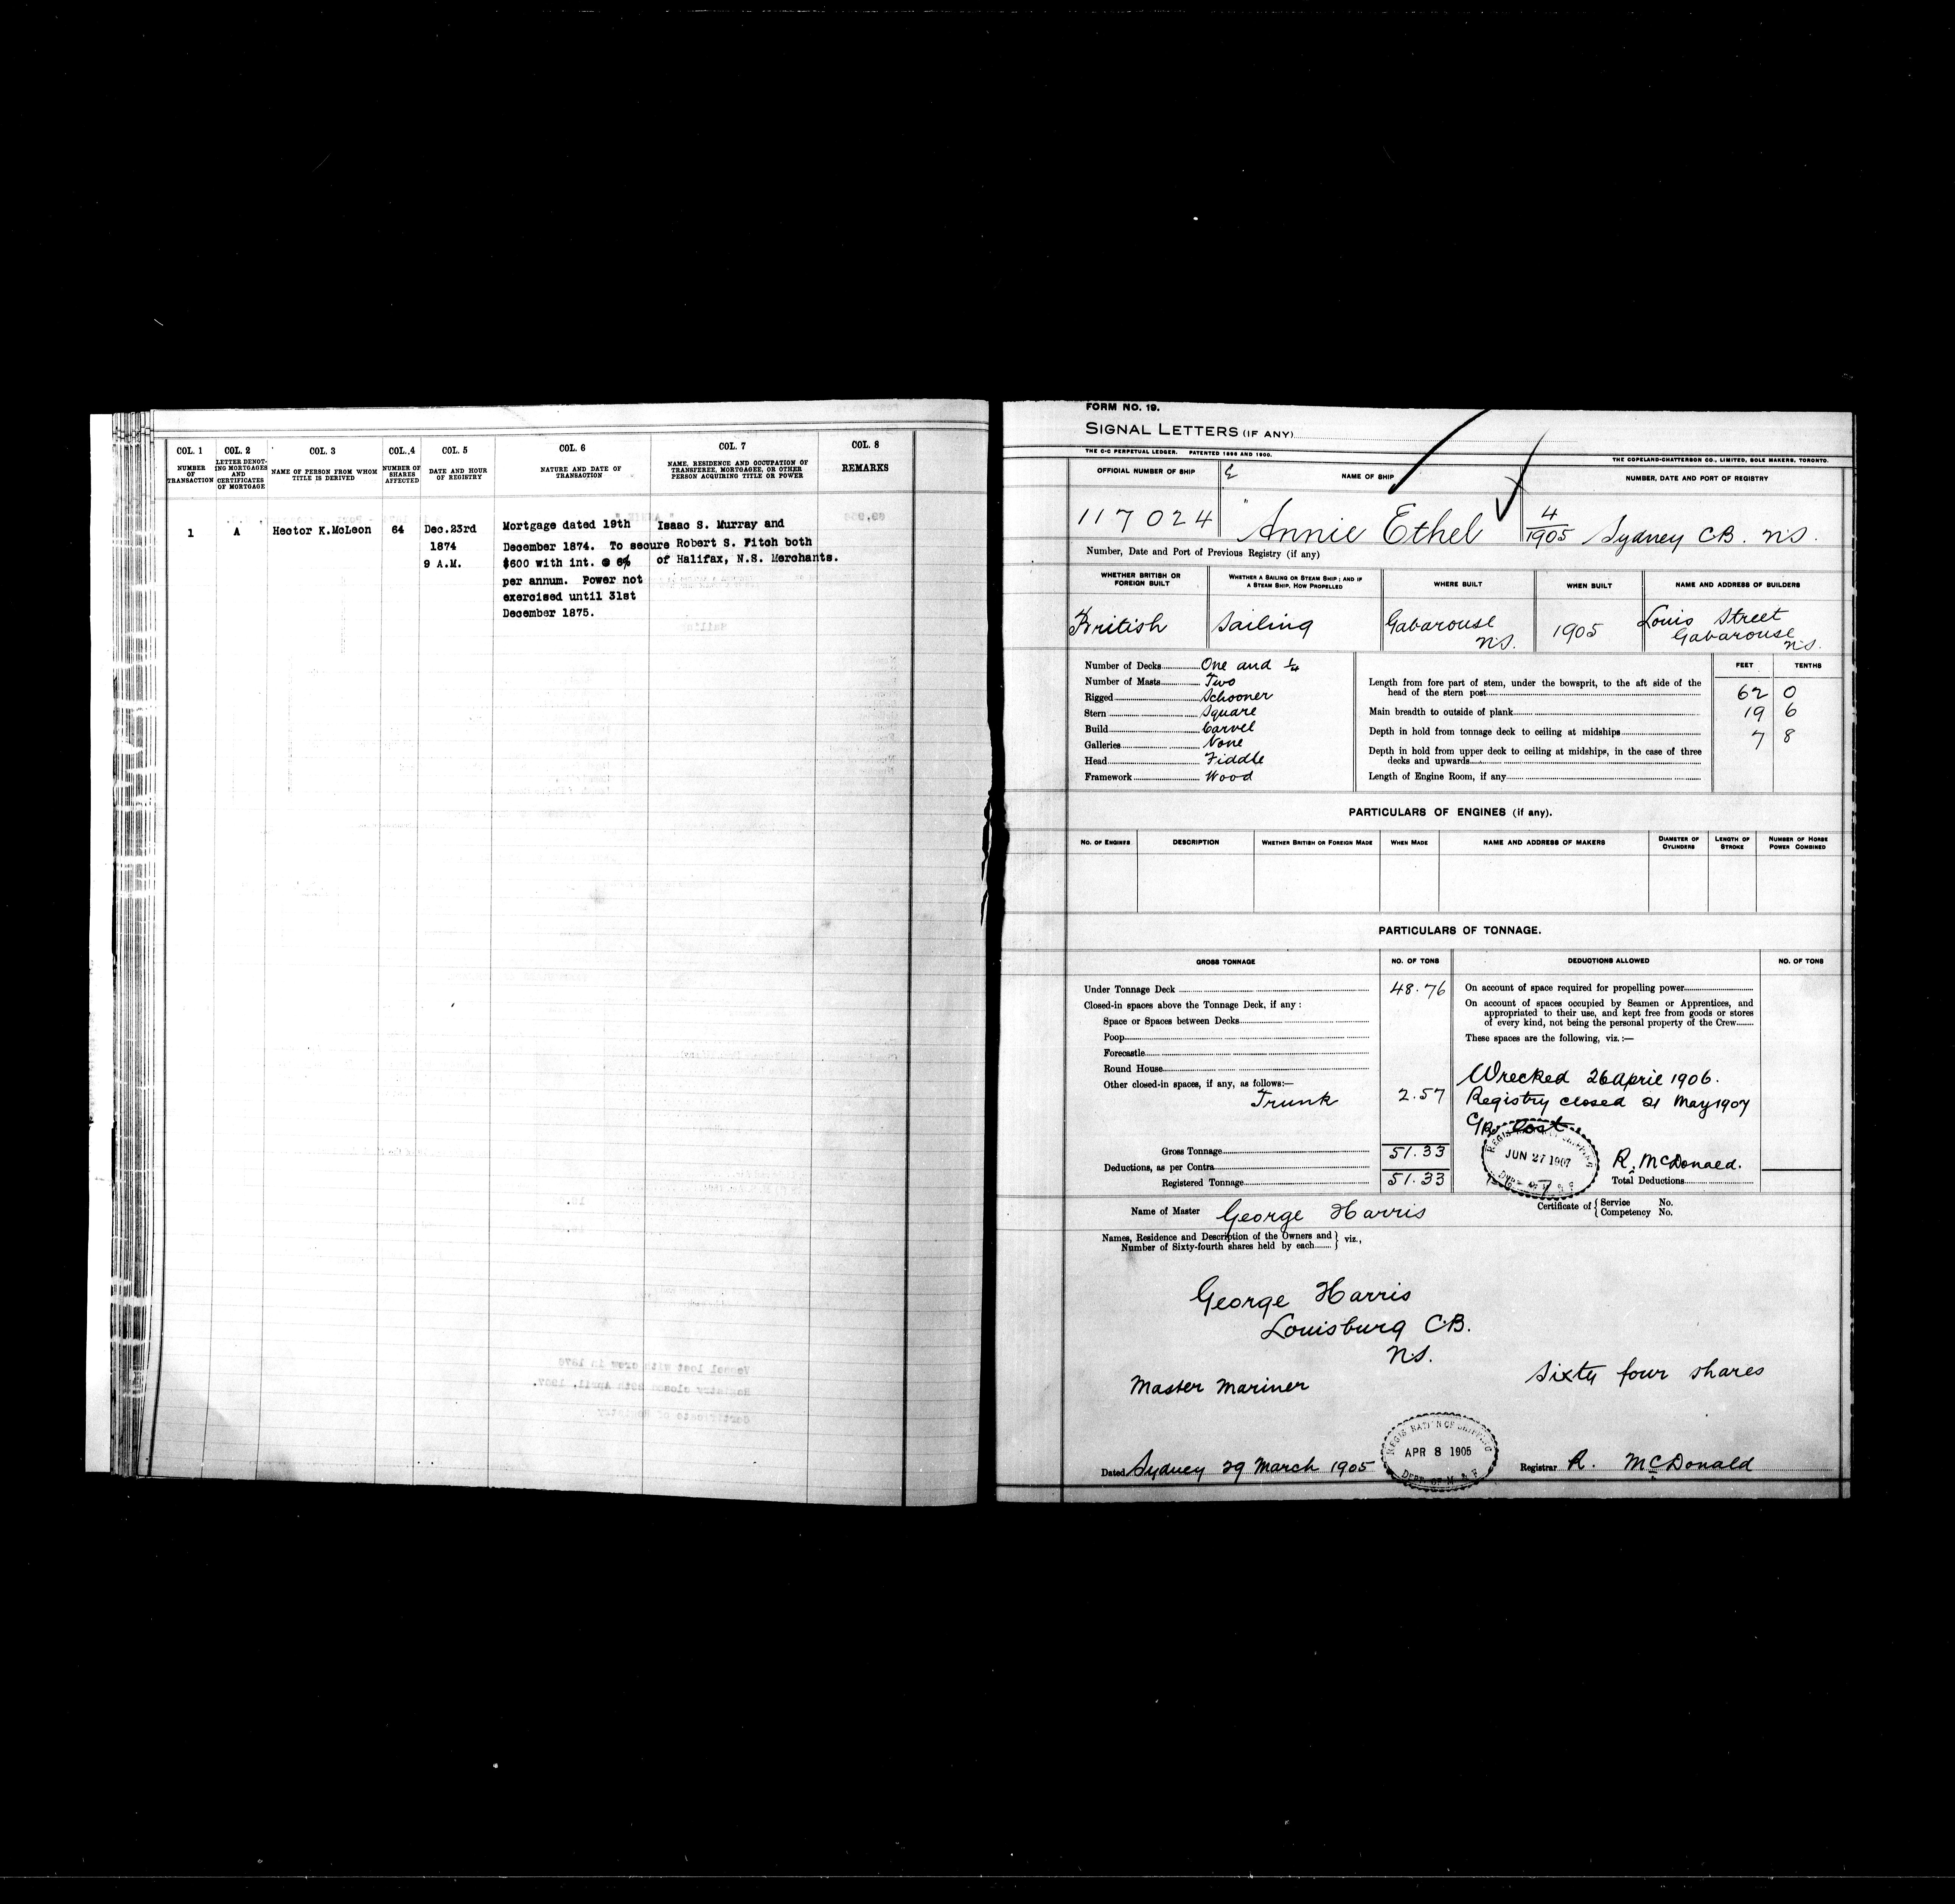 COL. 1
NUMBER
OF
TRANSACTION
COL. 2
LETTER DENOT-
ING MORTGAGES
AND
CERTIFICATES
OF MORTGAGE
COL. 3
NAME OF PERSON FROM WHOM
TITLE IS DERIVED
COL. 4
NUMBER OF
SHARES
AFFECTED
COL. 5
DATE AND HOUR
OF REGISTRY
COL. 6
NATURE AND DATE OF
TRANSACTION
COL. 7
NAME, RESIDENCE AND OCCUPATION OF
TRANSFEREE, MORTGAGEE, OR OTHER
PERSON ACQUIRING TITLE OR POWER
COL. 8
REMARKS
1
A
Hector K.McLeon
64
Dec.23rd
1874
9 A.M.
Mortgage dated 19th
December 1874. To secure
$600 with int. @ 6%
per annum. Power not
exercised until 31st
December 1875.
Isaac S. Murray and
Robert S. Fitch both
of Halifax, N.S. Merchants.
FORM NO. 19.
SIGNAL LETTERS (IF ANY)
THE C-C PERPETUAL LEDGER. PATENTED 1896 AND 1900.
THE COPELAND-CHATTERSON CO., LIMITED, SOLE MAKERS, TORONTO.
OFFICIAL NUMBER OF SHIP
NAME OF SHIP
NUMBER, DATE AND PORT OF REGISTRY
117024
"Annie Ethel
4/1905 Sydney C.B. N.S.
Number, Date and Port of Previous Registry (if any)
WHETHER BRITISH OR
FOREIGN BUILT
WHETHER A SAILING OR STEAM SHIP; AND IF
A STEAM SHIP, HOW PROPELLED
WHERE BUILT
WHEN BUILT
NAME AND ADDRESS OF BUILDERS
British
Sailing
Gabarouse
N.S.
1905
Louis Street
Gabarouse
N.S.
Number of Decks One and ¼
Number of Masts Two
Rigged Schooner
Stern Square
Build Carvel
Galleries None
Head Fiddle
Framework Wood
FEET TENTHS
Length from fore part of stem, under the bowsprit, to the aft side of the
head of the stern post 62 0
Main breadth to outside of plank 19 6
Depth in hold from tonnage deck to ceiling at midships 7 8
Depth in hold from upper deck to ceiling at midships, in the case of three
decks and upwards
Length of Engine Room, if any
PARTICULARS OF ENGINES (if any).
NO. OF ENGINES
DESCRIPTION
WHETHER BRITISH OR FOREIGN MADE
WHEN MADE
NAME AND ADDRESS OF MAKERS
DIAMETER OF
CYLINDERS
LENGTH OF
STROKE
NUMBER OF HORSE
POWER COMBINED
PARTICULARS OF TONNAGE.
GROSS TONNAGE
NO. OF TONS
DEDUCTIONS ALLOWED
NO. OF TONS
Under Tonnage Deck 48.76
Closed-in spaces above the Tonnage Deck, if any :
Space or Spaces between Decks
Poop
Forecastle
Round House
Other closed-in spaces, if any, as follows:—
Trunk 2.57
Gross Tonnage 51.33
Deductions, as per Contra
Registered Tonnage 51.33
On account of space required for propelling power
On account of spaces occupied by Seamen or Apprentices, and
appropriated to their use, and kept free from goods or stores
of every kind, not being the personal property of the Crew
These spaces are the following, viz.:—
Wrecked 26 April 1906.
Registry closed 21 May 1907
lost
JUN 27 1907
R. McDonald.
Total Deductions
Name of Master George Harris
Certificate of { Service No.
Competency No.
Names, Residence and Description of the Owners and } viz.,
Number of Sixty-fourth shares held by each
George Harris
Louisburg C.B.
N.S.
Master Mariner
Sixty four shares
REGISTRATION OF SHIPPING
APR 8 1905
DEPT. OF M. & F.
Dated Sydney 29 March 1905
Registrar R. McDonald